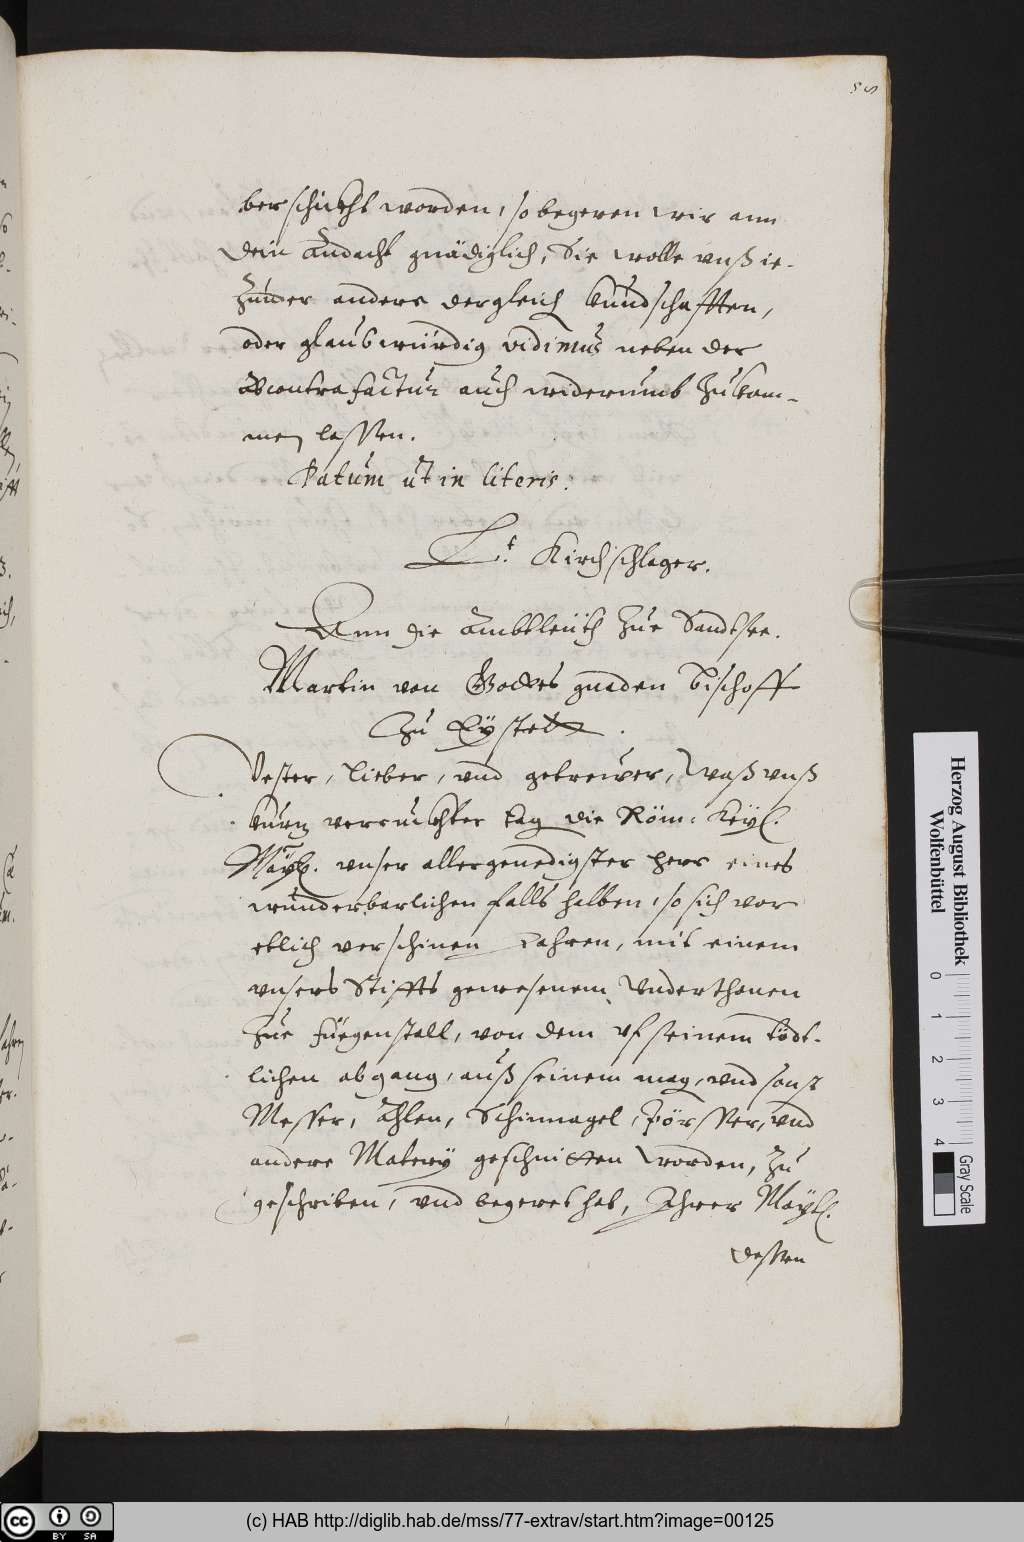 55
berschickht worden, so begeren wir ann
dein Andacht gnädiglich, Sie wolle vnß ie-
zuuer anders dergleich kundschafften,
oder glaubwürdig vidimus neben der
Abcontrafactur auch widerumb zukom-
men lassen.
Datum ut in literis.
Lt. Kirchschlager.
Ann die Ambtleüth zue Sandtsee.
Martin von Gottes gnaden Bischoff
zu Eystett.
Vester, lieber, vnd getrewer, Waß vnß
kurtz verruckhter tag die Röm: Keyl.
Maytt. vnser allergenedigster herr eines
wunderbarlichen falls halben, so sich vor
etlich verschinen Jahren, mit einem
vnsers Stiffts gewesenem Vnderthonen
zue Füegenstall, von dem vf seinem tödt-
lichen abgang, auß seinem mag, vnd sonst
Messer, Ahlen, Schinnagel, pörster, vnd
andere Matery geschnitten worden, zu
geschriben, vnd begeret hab, Ihrer Maytt.
dessen
Herzog August Bibliothek
Wolfenbüttel
0 1 2 3 4
Gray Scale
BY SA
(c) HAB http://diglib.hab.de/mss/77-extrav/start.htm?image=00125